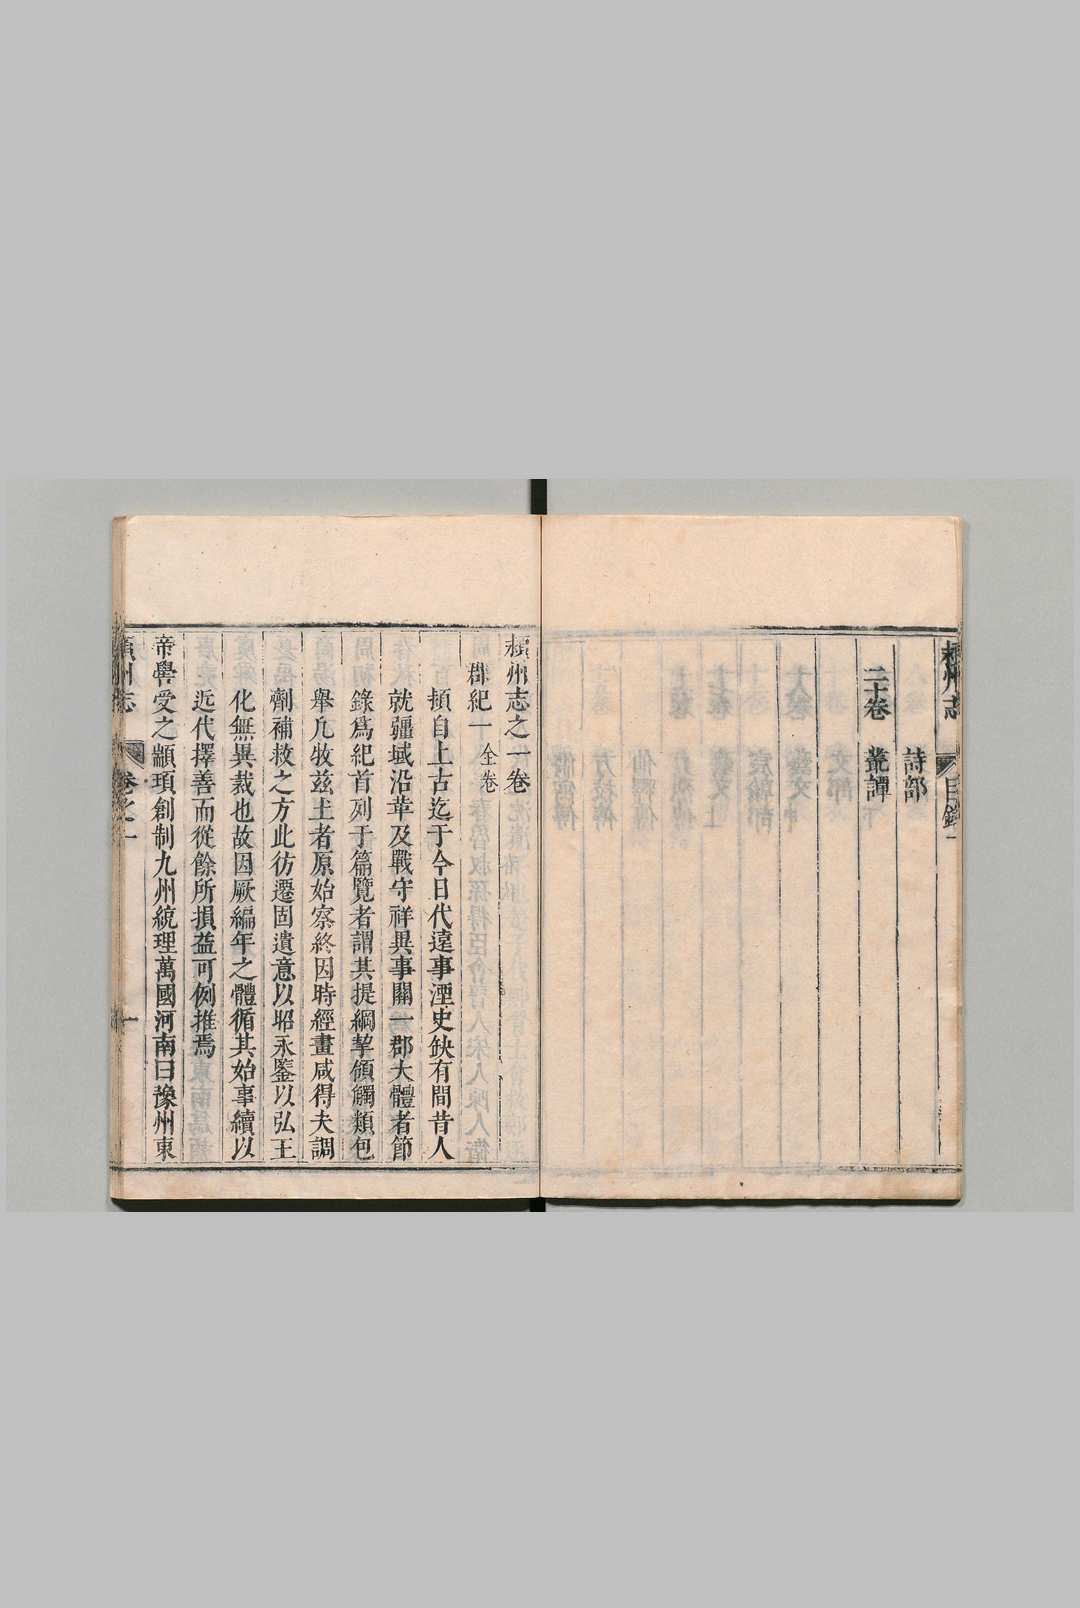 潁州志
目錄
詩部
二十卷　叢譚
潁州志之一卷
郡紀一　全卷
潁自上古迄于今日代遠事湮史缺有間昔人
就疆域沿革及戰守祥異事關一郡大體者節
錄為紀首列于篇覽者謂其提綱挈領觸類包
舉凡牧茲土者原始察終因時經畫咸得夫調
劑補救之方此彷遷固遺意以昭永鑒以弘王
化無異裁也故因厥編年之體循其始事續以
近代擇善而從餘所損益可例推焉
帝嚳受之顓頊創制九州統理萬國河南曰豫州東
潁州志　卷之一　一